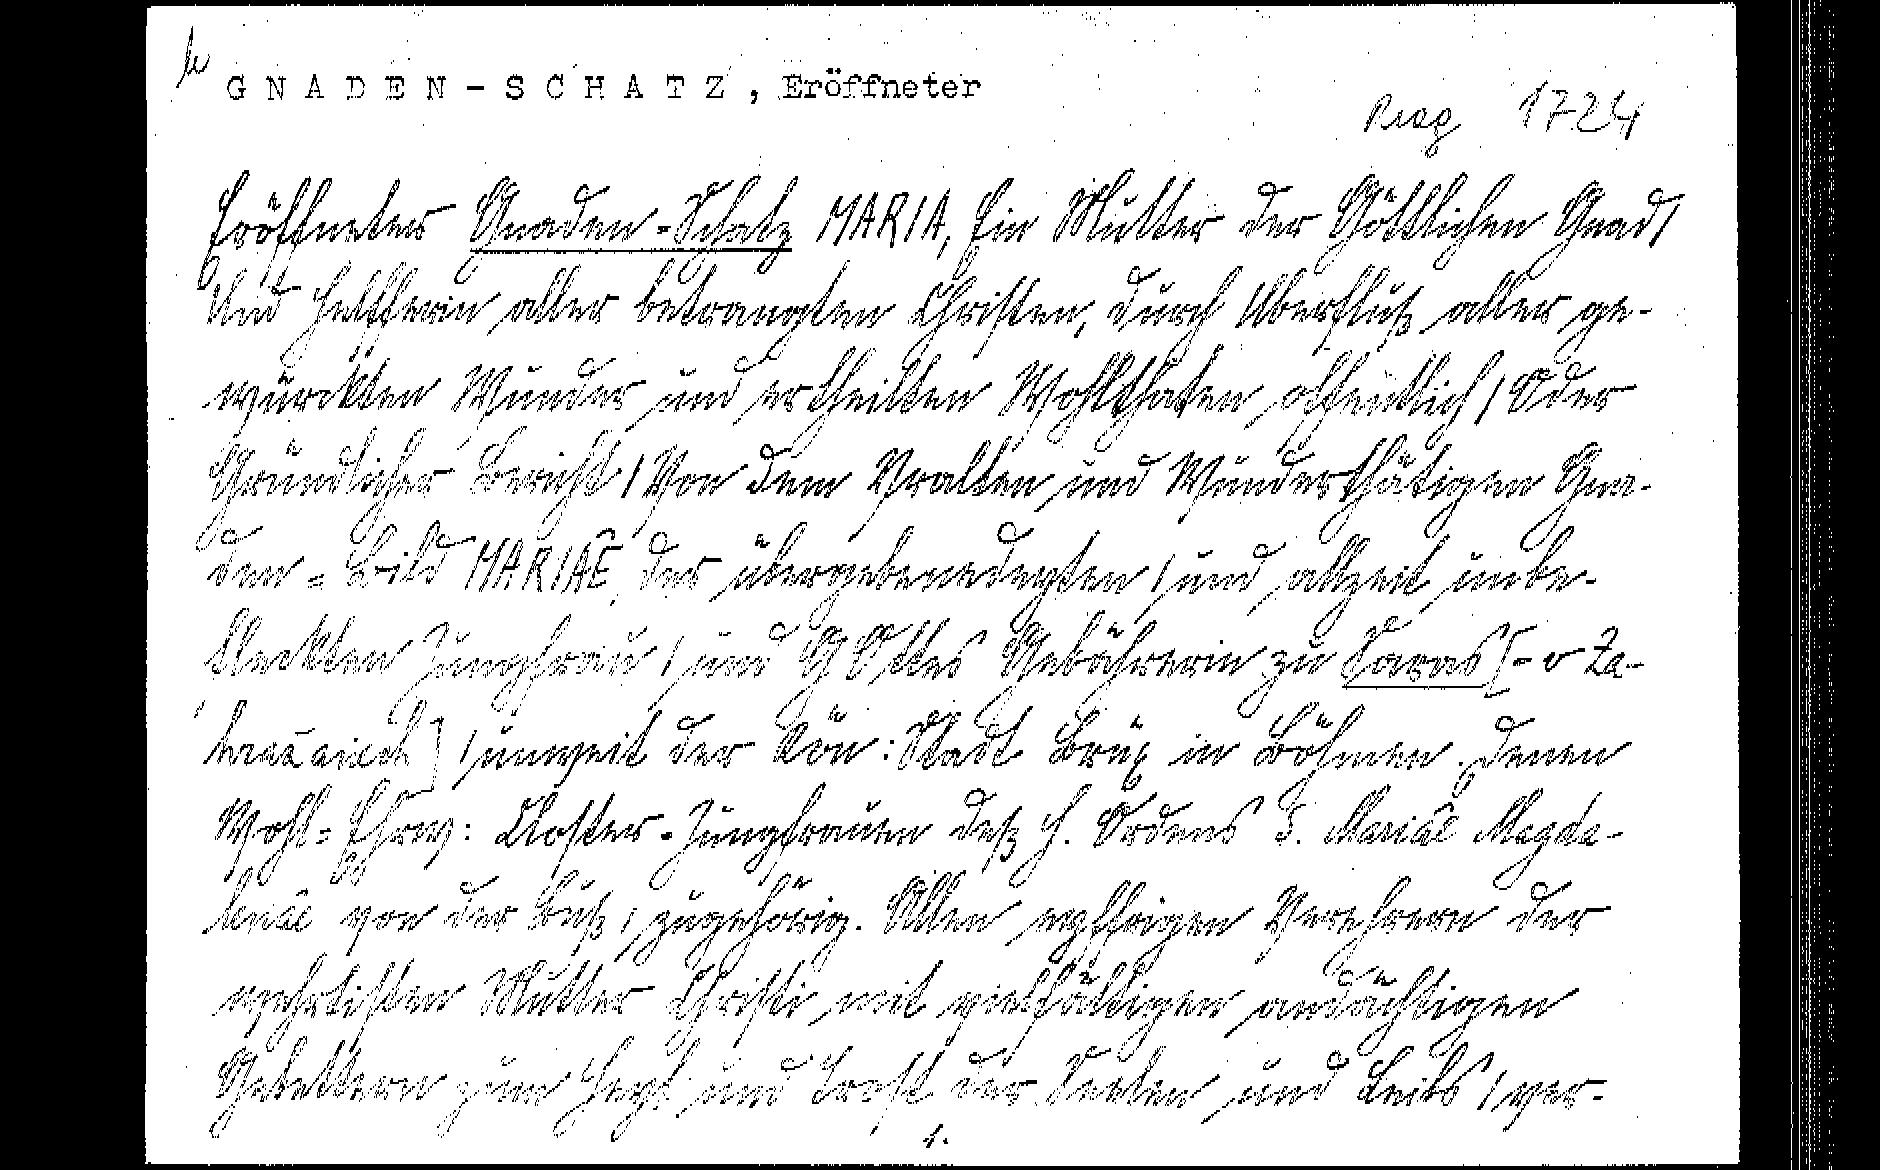 GNADEN-SCHATZ, Eröffneter
Prag 1724
Eröffneter Gnaden-Schatz MARIA, Ein Mutter der Göttlichen Gnad/
Und Helfferin aller betrangten Christen, durch Uberfluß aller ge-
würckten Wunder und ertheilten Wohlthaten offentlich / Oder
Gründlicher Bericht / Von dem Vralten und Wunderthätigen Gna-
den-Bild MARIAE, der übergebenedeyten / und allzeit unbe-
fleckten Jungfrau / und GOttes Gebährerin zu
/ unweit der Kön: Stadt Brüx in Böhmen. Denen
Wohl-Ehrw: Closter-Jungfrauen deß H. Ordens S. Mariae Magda-
lenae von der Buß / zugehörig. Allen eyffrigen Verehrern der
wehrtisten Mutter Christi mit vielfältigen andächtigen
Gebettern zum Heyl und Trost der Seelen und Leibs / ver-
1.